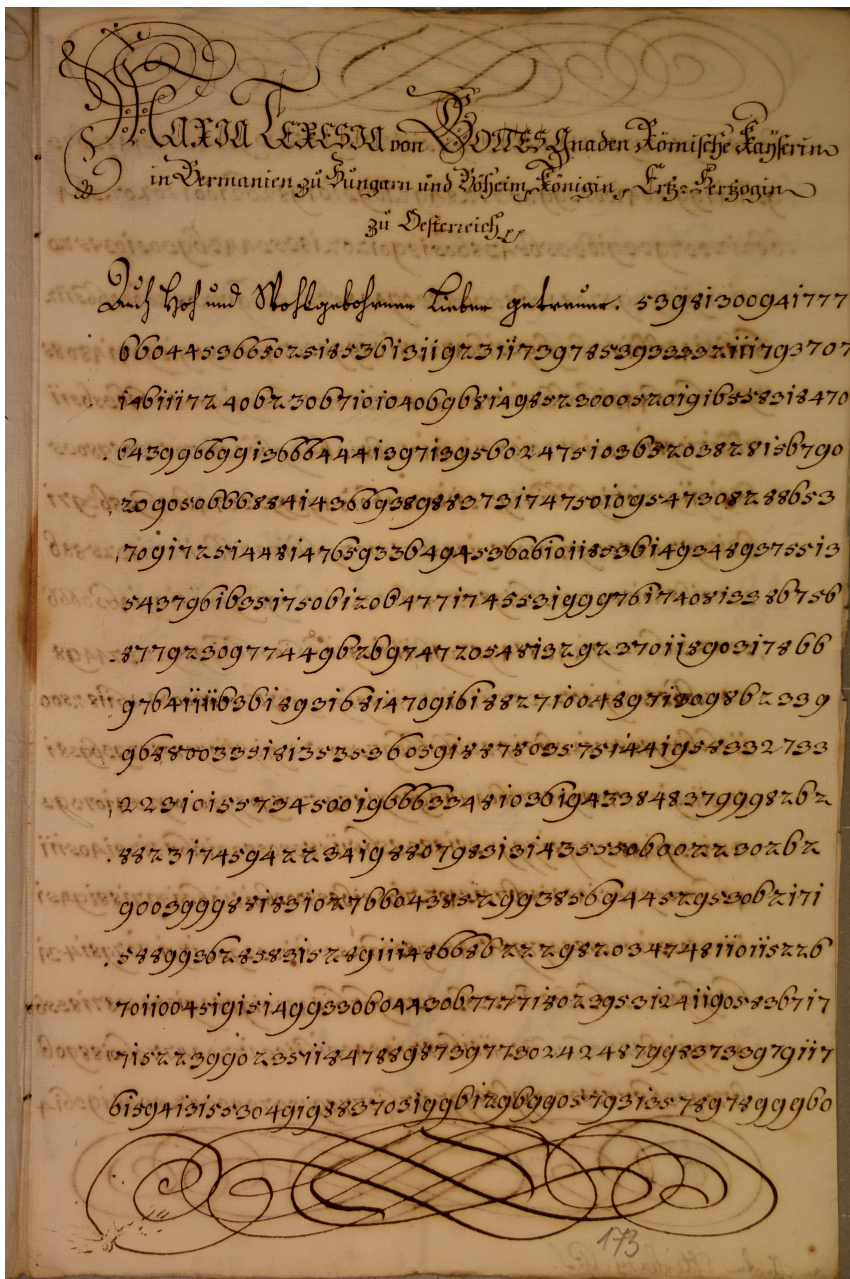 MARIA TERESIA von GOTTES Gnaden Römische Kayserin
in Germanien zu Hungarn und Böheim Königin, Ertz-Hertzogin
zu Oesterreich
Auch Hoch und Wohlgebohrner Lieber getreuer. 53981300941777
66044536650251853613119231173978539333321111793707
14611172406230671010406968149852300052019165583184 70
64399669913666444139713956024751036520382815 6790
20905066688414366938988373174750109547308288653
7091725144814765933649453606101185361493489375513
543796163517506120647717455319997617408133 86756
87792309774496269747205481329237011890317866
976411111636189316814709161882710048971130986 2339
9688003351813535360591887803575144195833 2733
22310155734500196663348103619433848379998262
88231745942234198807983131435550600223026 2
9003999885183102766043852993856944529530 62171
58899367858315289111486686222982034748110115226
70110045191514993306044306777718023953124119058367 17
715223990235118478898739773024248799837339791 17
615941315530491988370319961296990579313578978999 60
173